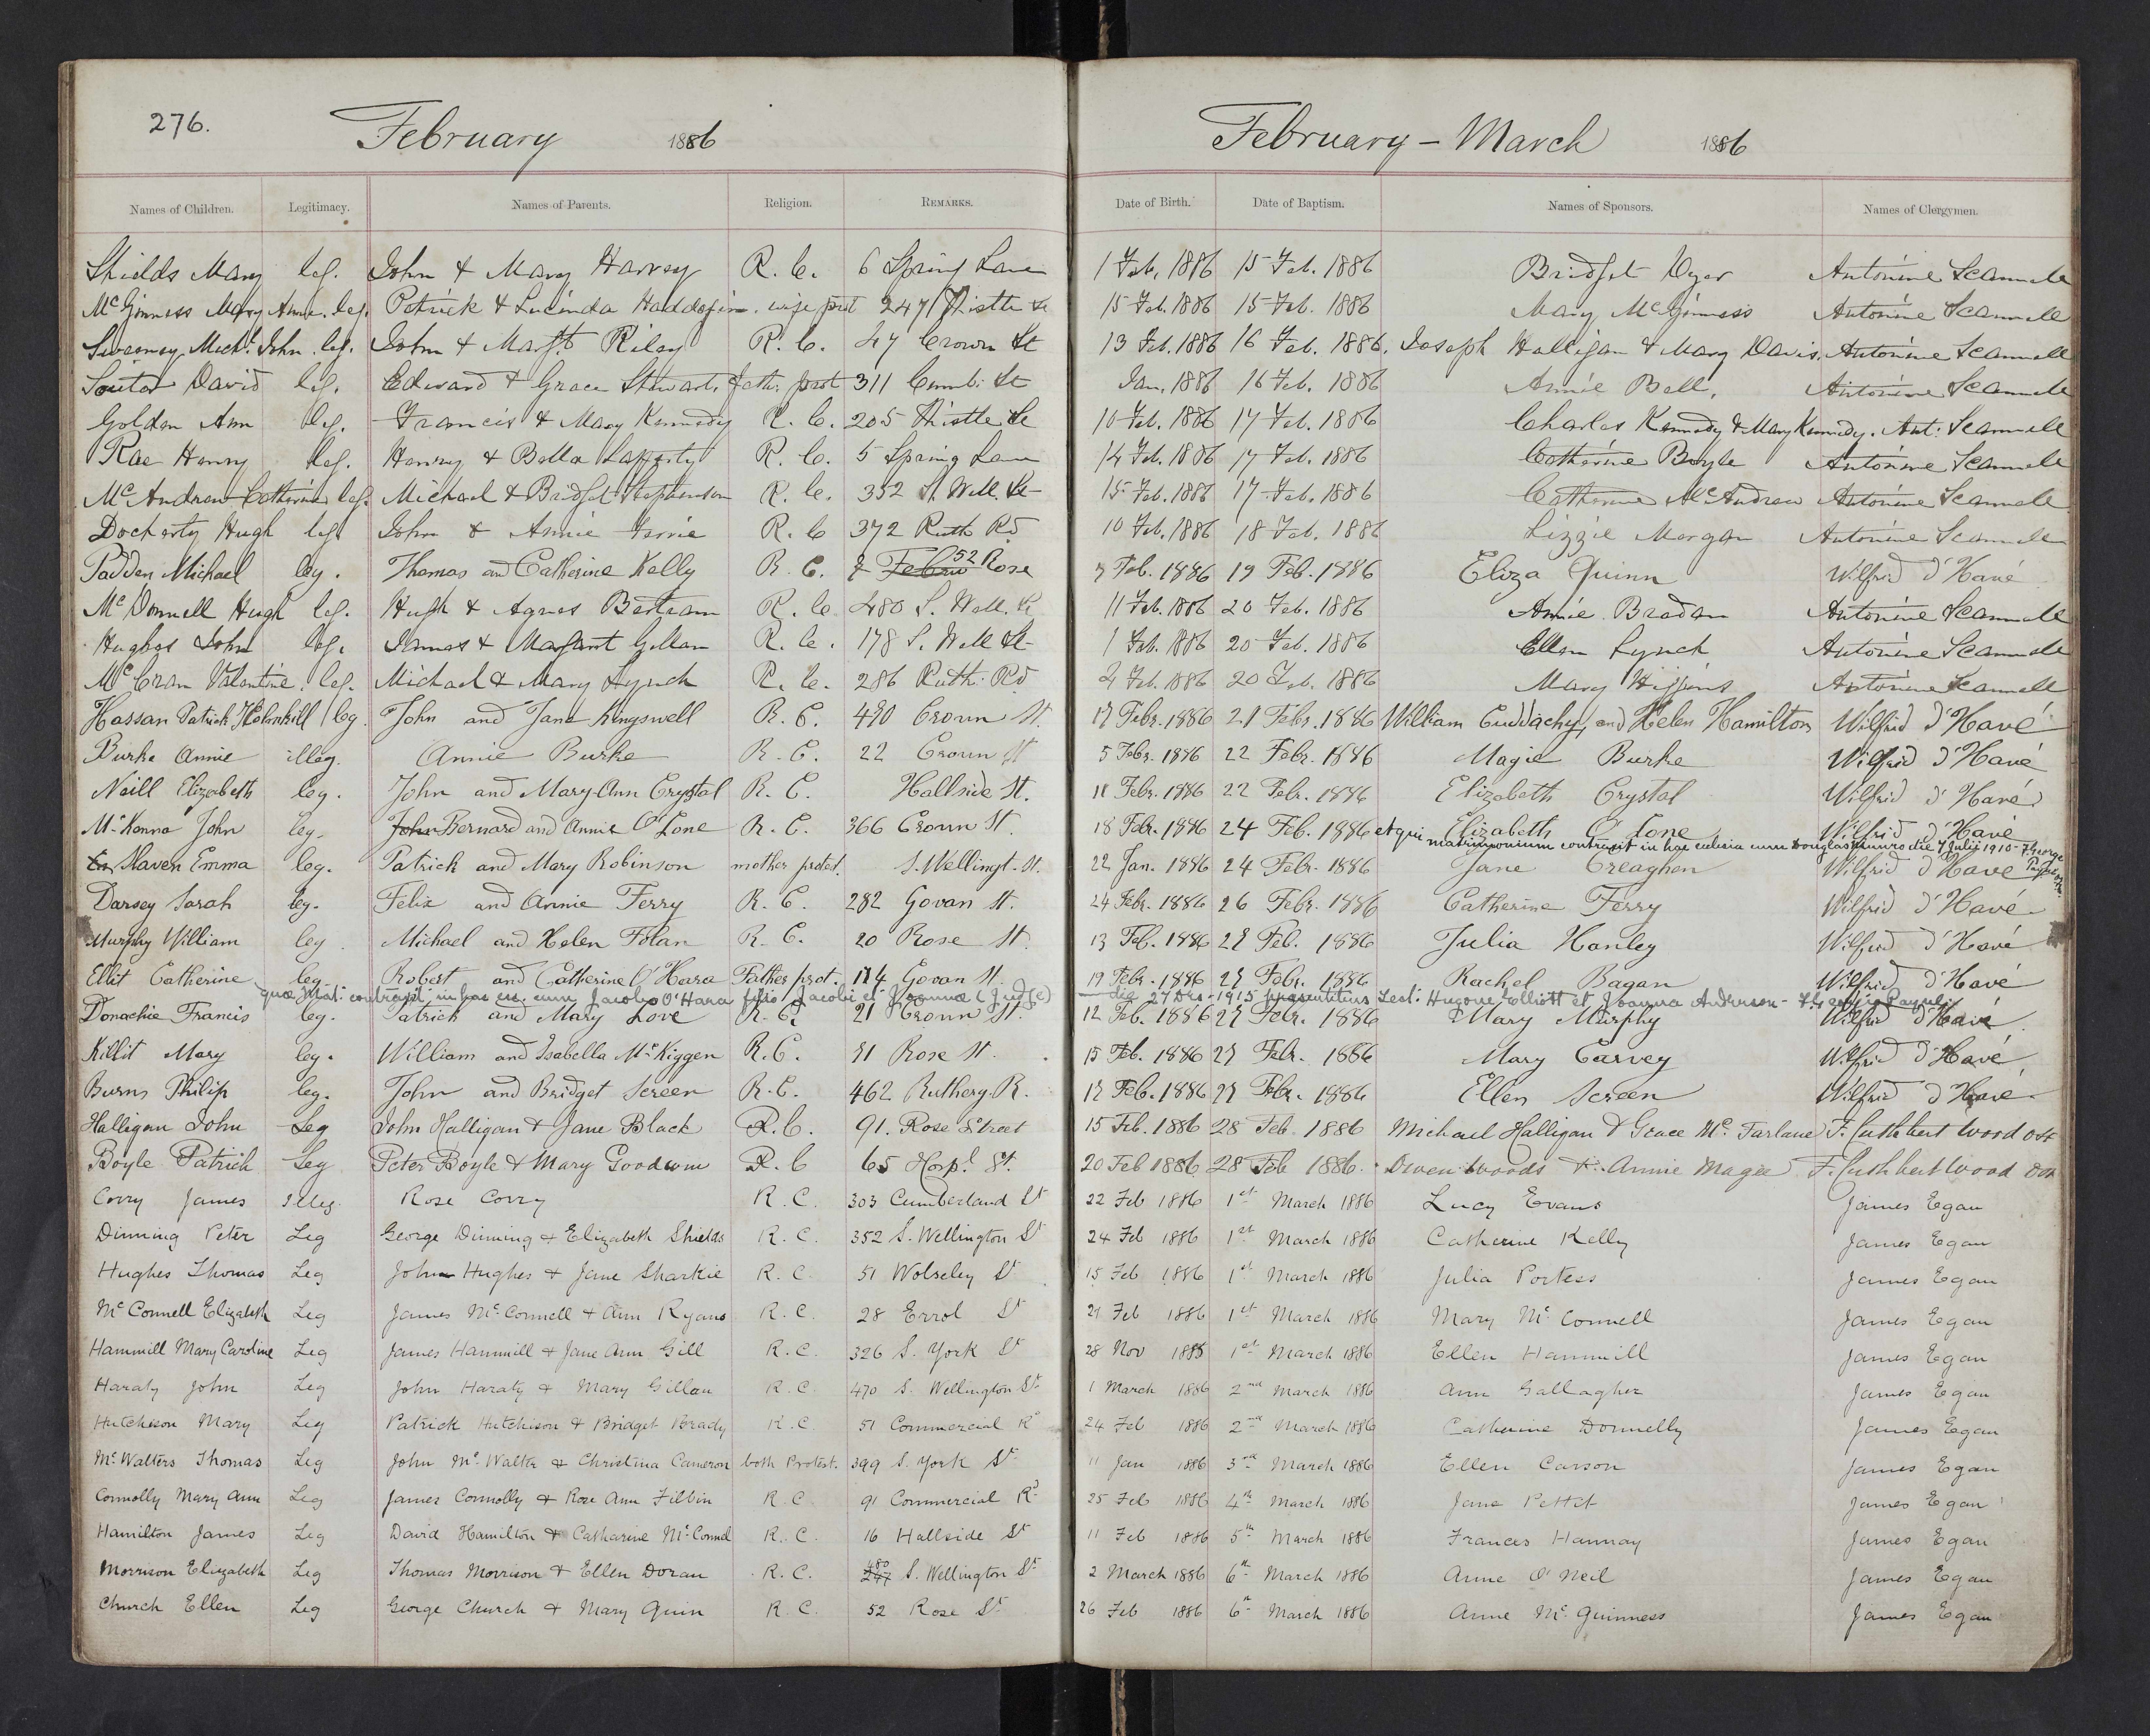 276.
February 1886
February - March 1886
Names of Children. Legitimacy. Names of Parents. Religion. REMARKS. Date of Birth. Date of Baptism. Names of Sponsors. Names of Clergymen.
Shields Mary leg. John & Mary Harvey R. C. 6 Spring Lane 1 Feb. 1886 15 Feb. 1886 Bridget Dyer Antonine Scannell
McGinness Mary Anne. leg. Patrick & Lucinda wife prot 247 Thistle St 15 Feb. 1886 15 Feb. 1886 Mary McGinness Antonine Scannell
Sweeney Michl. John. leg. John & Margt. Riley R. C. 47 Crown St 13 Feb. 1886 16 Feb. 1886. Joseph Halligan & Mary Davis. Antonine Scannell
Soutar David leg. Edward & Grace Stewart. fath: prot 311 Cumb: St Jan. 1886 16 Feb. 1886 Annie Bell. Antonine Scannell
Golden Ann leg. Francis & Mary Kennedy R. C. 205 Thistle St 10 Feb. 1886 17 Feb. 1886 Charles Kennedy & Mary Kennedy. Ant: Scannell
Rae Henry leg. Henry & Bella Lafferty R. C. 5 Spring Lane 14 Feb. 1886 17 Feb. 1886 Catherine Boyle Antonine Scannell
McAndrew Catherine leg. Michael & Bridget Stephenson R. C. 352 S. Well. St 15 Feb. 1886 17 Feb. 1886 Catherine McAndrew Antonine Scannell
Docherty Hugh leg John & Annie R. C 372 Ruth Rd 10 Feb. 1886 18 Feb. 1886 Lizzie Morgan Antonine Scannell
Padden Michael leg. Thomas and Catherine Kelly R. C. 52 Rose 7 Feb. 1886 19 Feb. 1886 Eliza Quinn Wilfrid d'Havé
McDonnell Hugh leg. Hugh & Agnes Bertram R. C 480 S. Well. St 11 Feb. 1886 20 Feb. 1886 Annie Braden Antonine Scannell
Hughes John leg. James & Margaret Gillan R. C. 178 S. Well St 1 Feb. 1886 20 Feb. 1886 Ellen Lynch Antonine Scannell
McCran Valentine. leg. Michael & Mary Lynch R. C. 286 Ruth. Rd 2 Feb. 1886 20 Feb. 1886 Mary Higgins Antonine Scannell
Hassan Patrick leg. John and Jane Kingswell R. C. 490 Crown St. 17 Febr. 1886 21 Febr. 1886 William Cuddachy, and Helen Hamilton Wilfrid d'Havé
Burke Annie illeg. Annie Burke R. C. 22 Crown St 5 Febr. 1886 22 Febr. 1886 Magie Burke Wilfrid d'Havé
Neill Elizabeth leg. John and Mary-Ann Crystal R. C. Hallside St. 18 Febr. 1886 22 Febr. 1886 Elizabeth Crystal Wilfrid d'Havé
McKenna John leg. John Bernard and Annie O'Lone R. C. 366 Crown St. 18 Febr. 1886 24 Feb. 1886 Elizabeth O'Lone Wilfrid d'Havé
et qui matrimonium contraxit in hac ecclesia cum Douglas Munro die 7 Julii 1910 - F. George Payne
Slaven Emma leg. Patrick and Mary Robinson mother protest. S. Wellingt. St. 22 Jan. 1886 24 Febr. 1886 Jane Creaghen Wilfrid d'Havé
Darsey Sarah leg. Felix and Annie Ferry R. C. 282 Govan St. 24 Febr. 1886 26 Febr. 1886 Catherine Ferry Wilfrid d'Havé
Murphy William leg. Michael and Helen Folan R. C. 20 Rose St. 13 Feb. 1886 27 Feb. 1886 Julia Hanley Wilfrid d'Havé
Ellit Catherine leg. Robert and Catherine O'Hara Father prot. 174 Govan St. 19 Febr. 1886 27 Febr. 1886 Rachel Bagan Wilfrid d'Havé
quae Mat: contraxit in hac ec. cum Jacobo O'Hara filio Jacobi et Joannae (Judge) die 27 1915 praesentibus test: Hugone Elliott et Joanna Anderson - F. George Payne
Donachie Francis leg. Patrick and Mary Love R. C. 21 Crown St. 12 Feb. 1886 27 Febr. 1886 Mary Murphy Wilfrid d'Havé
Killit Mary leg. William and Isabella McKiggen R. C. 31 Rose St. 15 Feb. 1886 27 Febr. 1886 Mary Carvey Wilfrid d'Havé
Burns Philip leg. John and Bridget Screen R. C. 462 Rutherg. R. 17 Feb. 1886 27 Febr. 1886 Ellen Screen Wilfrid d'Havé
Halligan John Leg John Halligan & Jane Black R. C. 91. Rose Street 15 Feb. 1886 28 Feb 1886 Michael Halligan & Grace Mc. Farlane F. Cuthbert Wood OSF
Boyle Patrick Leg Peter Boyle & Mary Goodwin R. C 65 Hospl St. 20 Feb 1886 28 Feb 1886. Owen Woods & Annie Magee F. Cuthbert Wood OSF
Corry James Illeg. Rose Corry R. C. 303 Cumberland St 22 Feb 1886 1st March 1886 Lucy Evans James Egan
Dinning Peter Leg George Dinning & Elizabeth Shields R. C. 352 S. Wellington St 24 Feb 1886 1st March 1886 Catherine Kelly James Egan
Hughes Thomas Leg John Hughes & Jane Sharkie R. C. 51 Wolseley St 15 Feb 1886 1st March 1886 Julia Portess James Egan
McConnell Elizabeth Leg James McConnell & Ann Ryans R. C. 28 Errol St 21 Feb 1886 1st March 1886 Mary McConnell James Egan
Hammill Mary Caroline Leg James Hammill & Jane Ann Gill R. C. 326 S. York St 28 Nov 1885 1st March 1886 Ellen Hammill James Egan
Haraty John Leg John Haraty & Mary Gillan R. C. 470 S. Wellington St 1 March 1886 2nd March 1886 Ann Gallagher James Egan
Hutchison Mary Leg Patrick Hutchison & Bridget Brady R. C 51 Commercial Rd 24 Feb 1886 2nd March 1886 Catherine Donnelly James Egan
McWalters Thomas Leg John McWalter & Christina Cameron both Protest. 399 S. York St 11 Jan 1886 3rd March 1886 Ellen Carson James Egan
Connolly Mary Ann Leg James Connolly & Rose Ann Filbin R. C 91 Commercial Rd 25 Feb 1886 4th March 1886 Jane Pettit James Egan
Hamilton James Leg David Hamilton & Catharine McConnel R. C. 16 Hallside St 11 Feb 1886 5th March 1886 Frances Hannay James Egan
Morrison Elizabeth Leg Thomas Morrison & Ellen Doran R. C. 480 S. Wellington St 2 March 1886 6th March 1886 Anne O'Neil James Egan
Church Ellen Leg George Church & Mary Quin R. C. 52 Rose St 26 Feb 1886 6th March 1886 Anne McGuinness James Egan